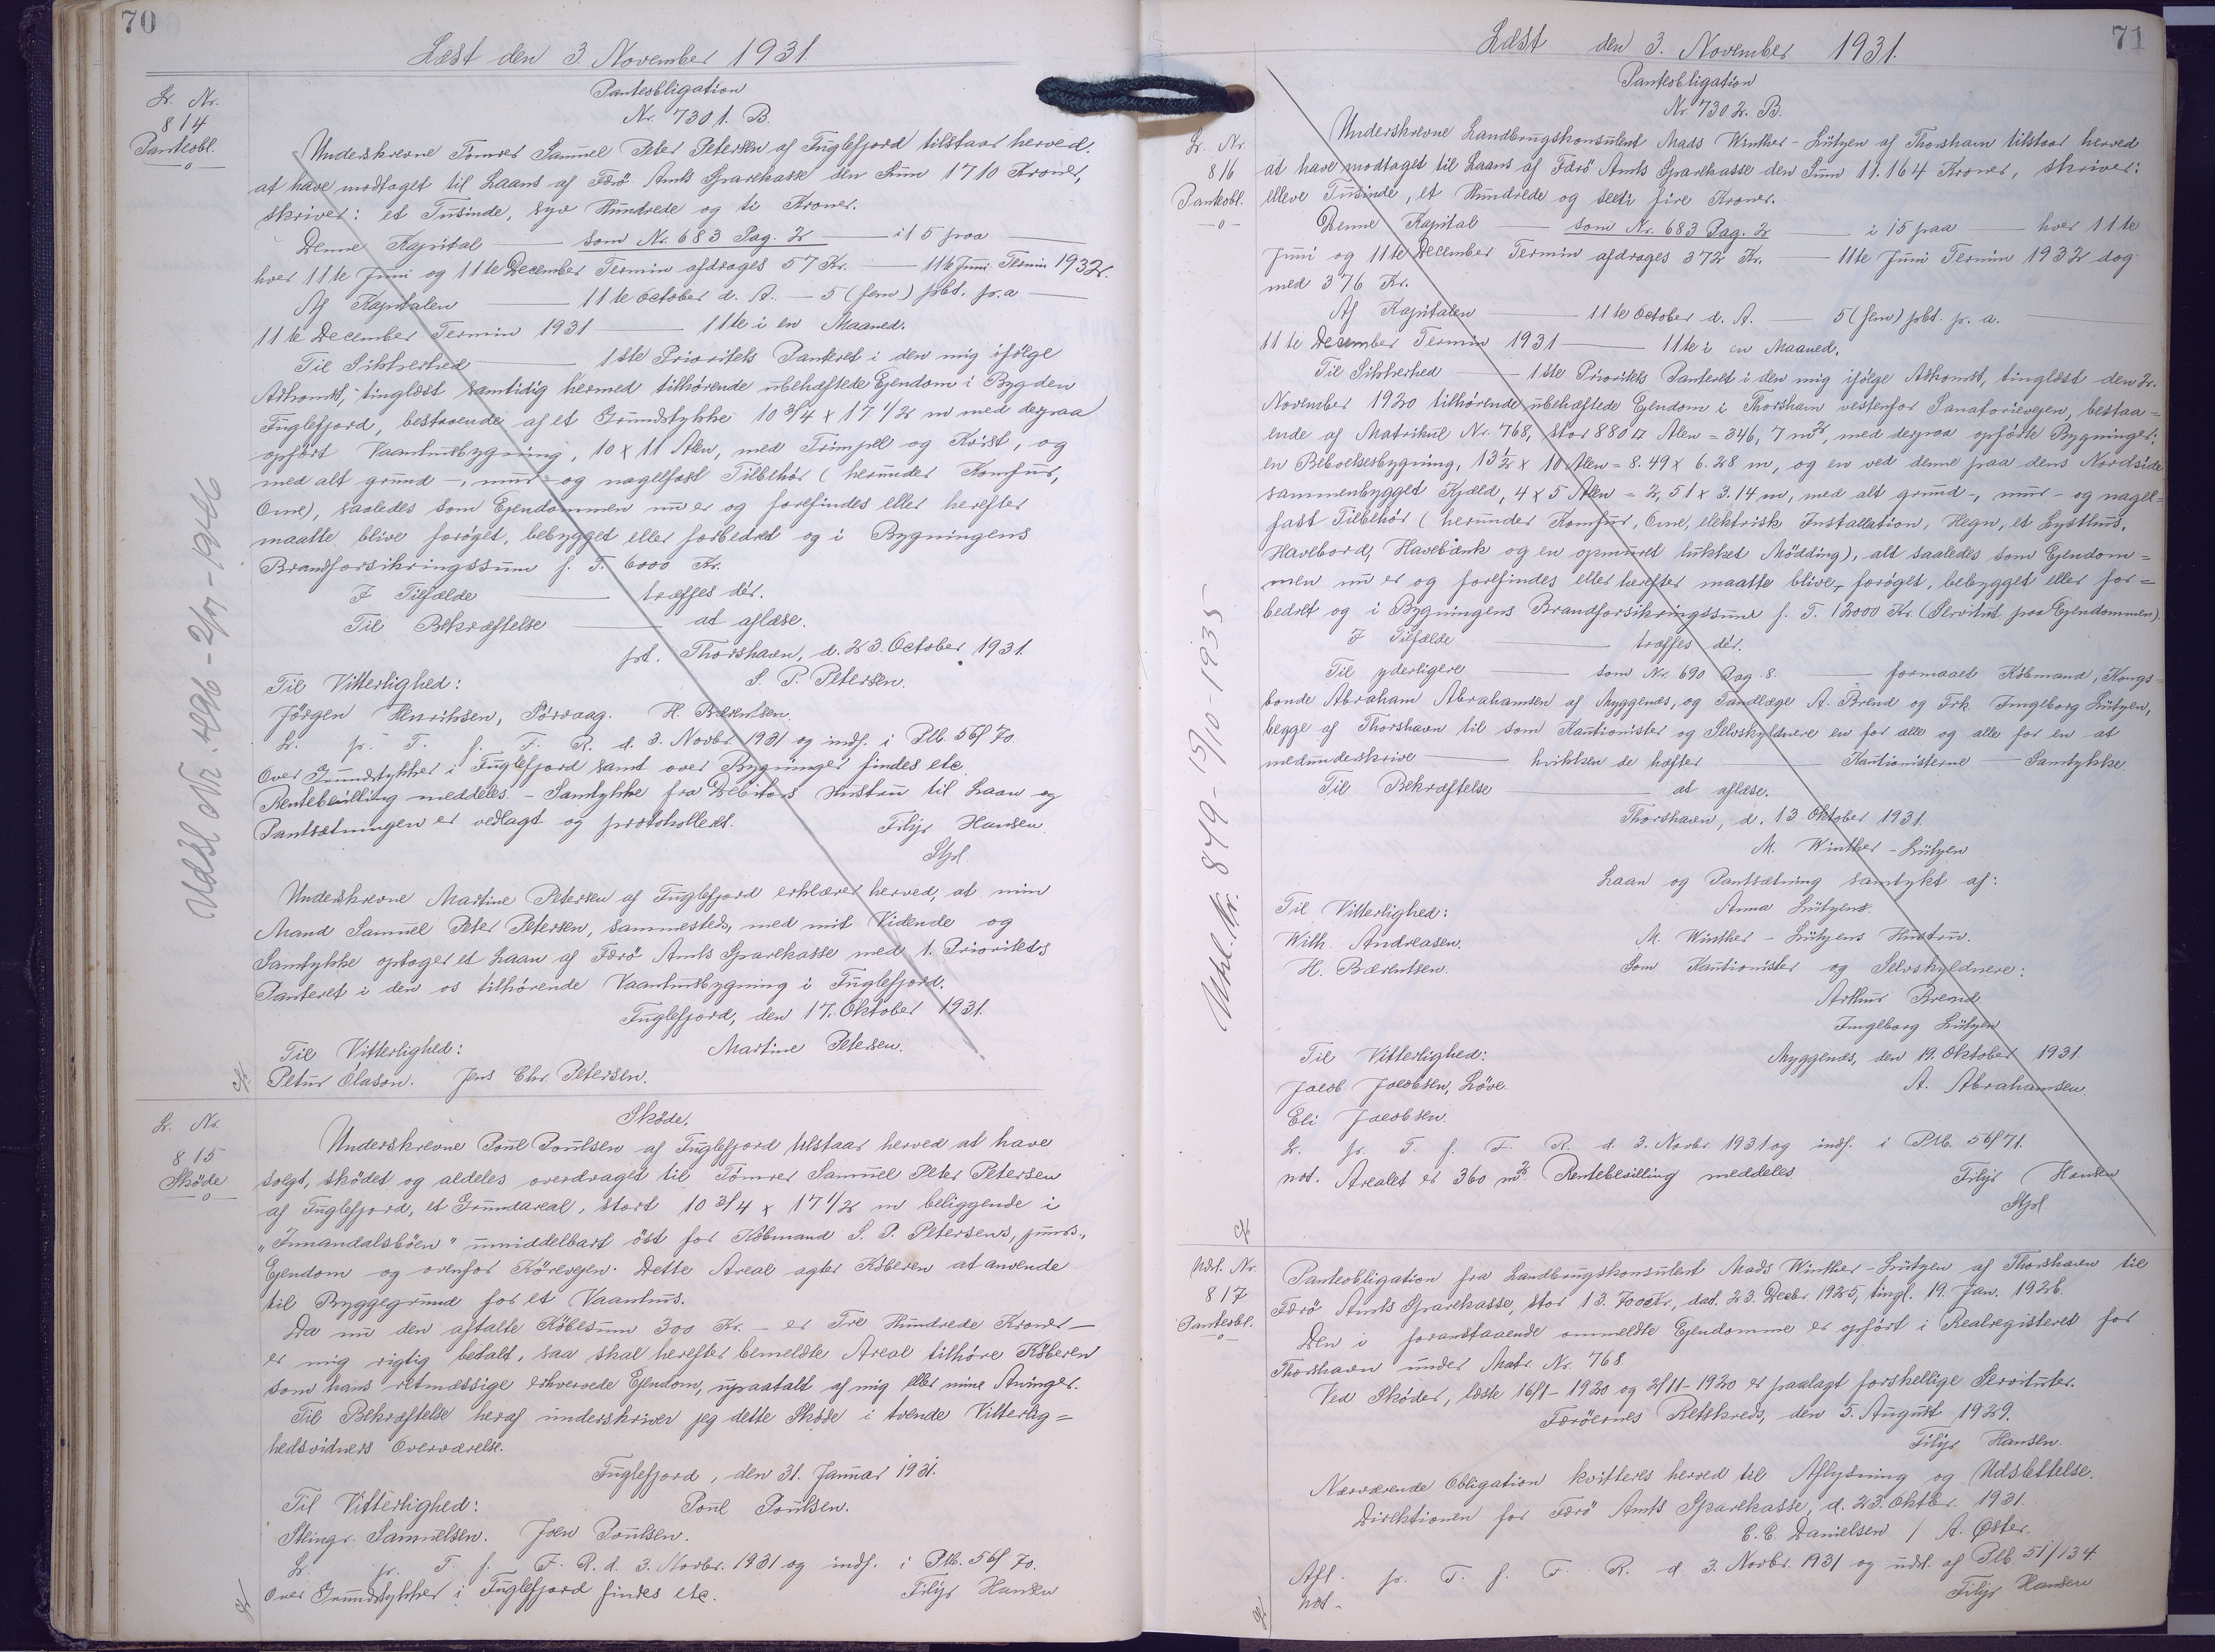 70
Læst den 3 November 1931.
L. Nr.
814
Panteobl.
Panteobligation
Nr. 7301. B.
Underskrevne Tømrer Samuel Peter Petersen af Fuglefjord tilstaar herved,
at have modtaget til Laans af Færø Amts Sparekasse den Sum 1710 Kroner,
skriver: et Tusinde, syv Hundrede og ti Kroner.
Denne Kapital — som Nr. 683 Pag. 2 — i 15 paa —
hver 11te Juni og 11te December Termin afdrages 57 Kr. — 11te Juni Termin 1932.
Af Kapitalen — 11te October d. A. — 5 (fem) pCt. p.a —
11te December Termin 1931 — 11te i en Maaned.
Til Sikkerhed — 1ste Prioritets Panteret i den mig ifølge
Adkomst, tinglæst samtidig hermed tilhørende ubehæftede Ejendom i Bygden
Fuglefjord, bestaaende af et Grundstykke 10 3/4 x 17 1/2 m med derpaa
opført Vaanhusbygning, 10 x 11 Alen, med Trimpel og Kvist, og
med alt grund-, mur- og nagelfast Tilbehør (herunder Komfur,
Ovne), saaledes som Ejendommen nu er og forefindes eller herefter
maatte blive forøget, bebygget eller forbedret og i Bygningens
Brandforsikringssum f. T. 6000 Kr.
I Tilfælde — træffes dér.
Til Bekræftelse — at aflæse.
pt. Thorshavn, d. 23. October 1931.
S. P. Petersen.
Til Vitterlighed:
Jørgen Henriksen, Sørvaag. H. Bærentsen.
L. p. T. f. F. R. d. 3. Novbr. 1931 og indf. i Plb. 56/70.
Over Grundstykker i Fuglefjord samt over Bygninger findes etc.
Rentebevilling meddeles. - Samtykke fra Debitors Hustru til Laan og
Pantsætningen er vedlagt og protokolleret.
Filip Hansen.
Stpl.
Underskrevne Martine Petersen af Fuglefjord erklærer herved, at min
Mand Samuel Peter Petersen, sammesteds, med mit Vidende og
Samtykke optager et Laan af Færø Amts Sparekasse med 1. Prioritets
Panteret i den os tilhørende Vaanhusbygning i Fuglefjord.
Fuglefjord, den 17. Oktober 1931.
Martine Petersen.
Til Vitterlighed:
Petur Ólason. Jens Chr. Petersen.
Udsl Nr. 496 - 2/7 - 1946
L. Nr.
815
Skøde
Skøde.
Underskrevne Poul Poulsen af Fuglefjord tilstaar herved at have
solgt, skødet og aldeles overdraget til Tømrer Samuel Peter Petersen
af Fuglefjord, et Grundareal, stort 10 3/4 x 17 1/2 m beliggende i
"Innandalsbøen" umiddelbart øst for Købmand S. P. Petersens, junrs.,
Ejendom og ovenfor Kørevejen. Dette Areal agter Køberen at anvende
til Byggegrund for et Vaanhus.
Da nu den aftalte Købesum 300 Kr. - er Tre Hundrede Kroner -
er mig rigtig betalt, saa skal herefter bemeldte Areal tilhøre Køberen
som hans retmæssige erhvervede Ejendom, upaatalt af mig eller mine Arvinger.
Til Bekræftelse heraf underskriver jeg dette Skøde i tvende Vitterlig=
hedsvidners Overværelse.
Fuglefjord, den 31. Januar 1931.
Til Vitterlighed: Poul Poulsen.
Steingr. Samuelsen. Joen Poulsen.
L. p. T. f. F. R. d. 3. Novbr. 1931 og indf. i Plb. 56/70.
Over Grundstykker i Fuglefjord findes etc. Filip Hansen
71
Læst den 3. November 1931.
L. Nr.
816
Panteobl.
Panteobligation
Nr. 7302. B.
Underskrevne Landbrugskonsulent Mads Winther-Lützen af Thorshavn tilstaar herved
at have modtaget til Laans af Færø Amts Sparekasse den Sum 11.164 Kroner, skriver:
elleve Tusinde, et Hundrede og seeti fire Kroner.
Denne Kapital — som Nr. 683 Pag. 2 — i 15 paa — hver 11te
Juni og 11te December Termin afdrages 372 Kr. — 11te Juni Termin 1932 dog
med 376 Kr.
Af Kapitalen — 11te October d. A. — 5 (fem) pCt. p. a. —
11te December Termin 1931 — 11te i en Maaned.
Til Sikkerhed — 1ste Prioritets Panteret i den mig ifølge Adkomst, tinglæst den 2.
November 1920 tilhørende ubehæftede Ejendom i Thorshavn vestenfor Sanatorievejen, bestaa=
ende af Matrikul Nr. 768, stor 880 □ Alen = 346,7 m², med derpaa opførte Bygninger;
en Beboelsesbygning, 13½ x 10 Alen = 8.49 x 6.28 m, og en ved denne paa dens Nordside
sammenbygget Kjæld, 4 x 5 Alen = 2,51 x 3.14 m, med alt grund-, mur- og nagel=
fast Tilbehør (herunder Komfur, Ovne, elektrisk Installation, Hegn, et Lysthus,
Havebord, Havebænk og en opmuret lukket Mødding), alt saaledes som Ejendom=
men nu er og forefindes eller herefter maatte blive, forøget, bebygget eller for=
bedret og i Bygningens Brandforsikringssum f. T. 12000 Kr. (Servitut paa Ejendommen).
I Tilfælde — træffes dér.
Til yderligere — som Nr. 690 Pag. 8. — formaaet Købmand, Kongs=
bonde Abraham Abrahamsen af Myggenæs, og Tandlæge A. Brend og Frk. Ingeborg Lützen,
begge af Thorshavn til som Kautionister og Selvskyldnere en for alle og alle for en at
medunderskrive — hvilken de hæfter — Kautionisterne — Samtykke
Til Bekræftelse — at aflæse.
Thorshavn, d. 13. Oktober 1931.
M. Winther-Lützen
Laan og Pantsætning samtykt af:
Til Vitterlighed: Anna Lützen
With. Andreasen. M. Winther-Lützens Hustru.
H. Bærentsen. Som Kautionister og Selvskyldnere:
Arthur Brend
Ingeborg Lützen
Til Vitterlighed: Myggenæs, den 19. Oktober 1931.
Jacob Jacobsen, Løve A. Abrahamsen.
Eli Jacobsen.
L. p. T. f. F. R. d. 3. Novbr 1931 og indf. i Plb. 56/71.
not. Arealet er 360 m². Rentebevilling meddeles. Filip Hansen
Stpl.
Udsl. Nr. 849 - 15/10 - 1935
Udsl. Nr.
817
Panteobl.
Panteobligation fra Landbrugskonsulent Mads Winther-Lützen af Thorshavn til
Færø Amts Sparekasse, stor 13.700 Kr., dat. 23. Decbr 1925, tingl. 19. Jan. 1926.
Den i foranstaaende ommeldte Ejendomme er opført i Realregisteret for
Thorshavn under Matr. Nr. 768.
Ved Skøder, læste 16/1-1920 og 2/11-1920 er paalagt forskellige Servituter.
Færøernes Retskreds, den 5. August 1929.
Filip Hansen.
Nærværende Obligation kvitteres herved til Aflysning og Udslettelse.
Direktionen for Færø Amts Sparekasse, d. 23. Oktbr. 1931.
C. C. Danielsen / A. Øster.
Afl. p. T. f. F. R. d. 3. Novbr. 1931 og udsl. af Plb. 51/134.
not. Filip Hansen